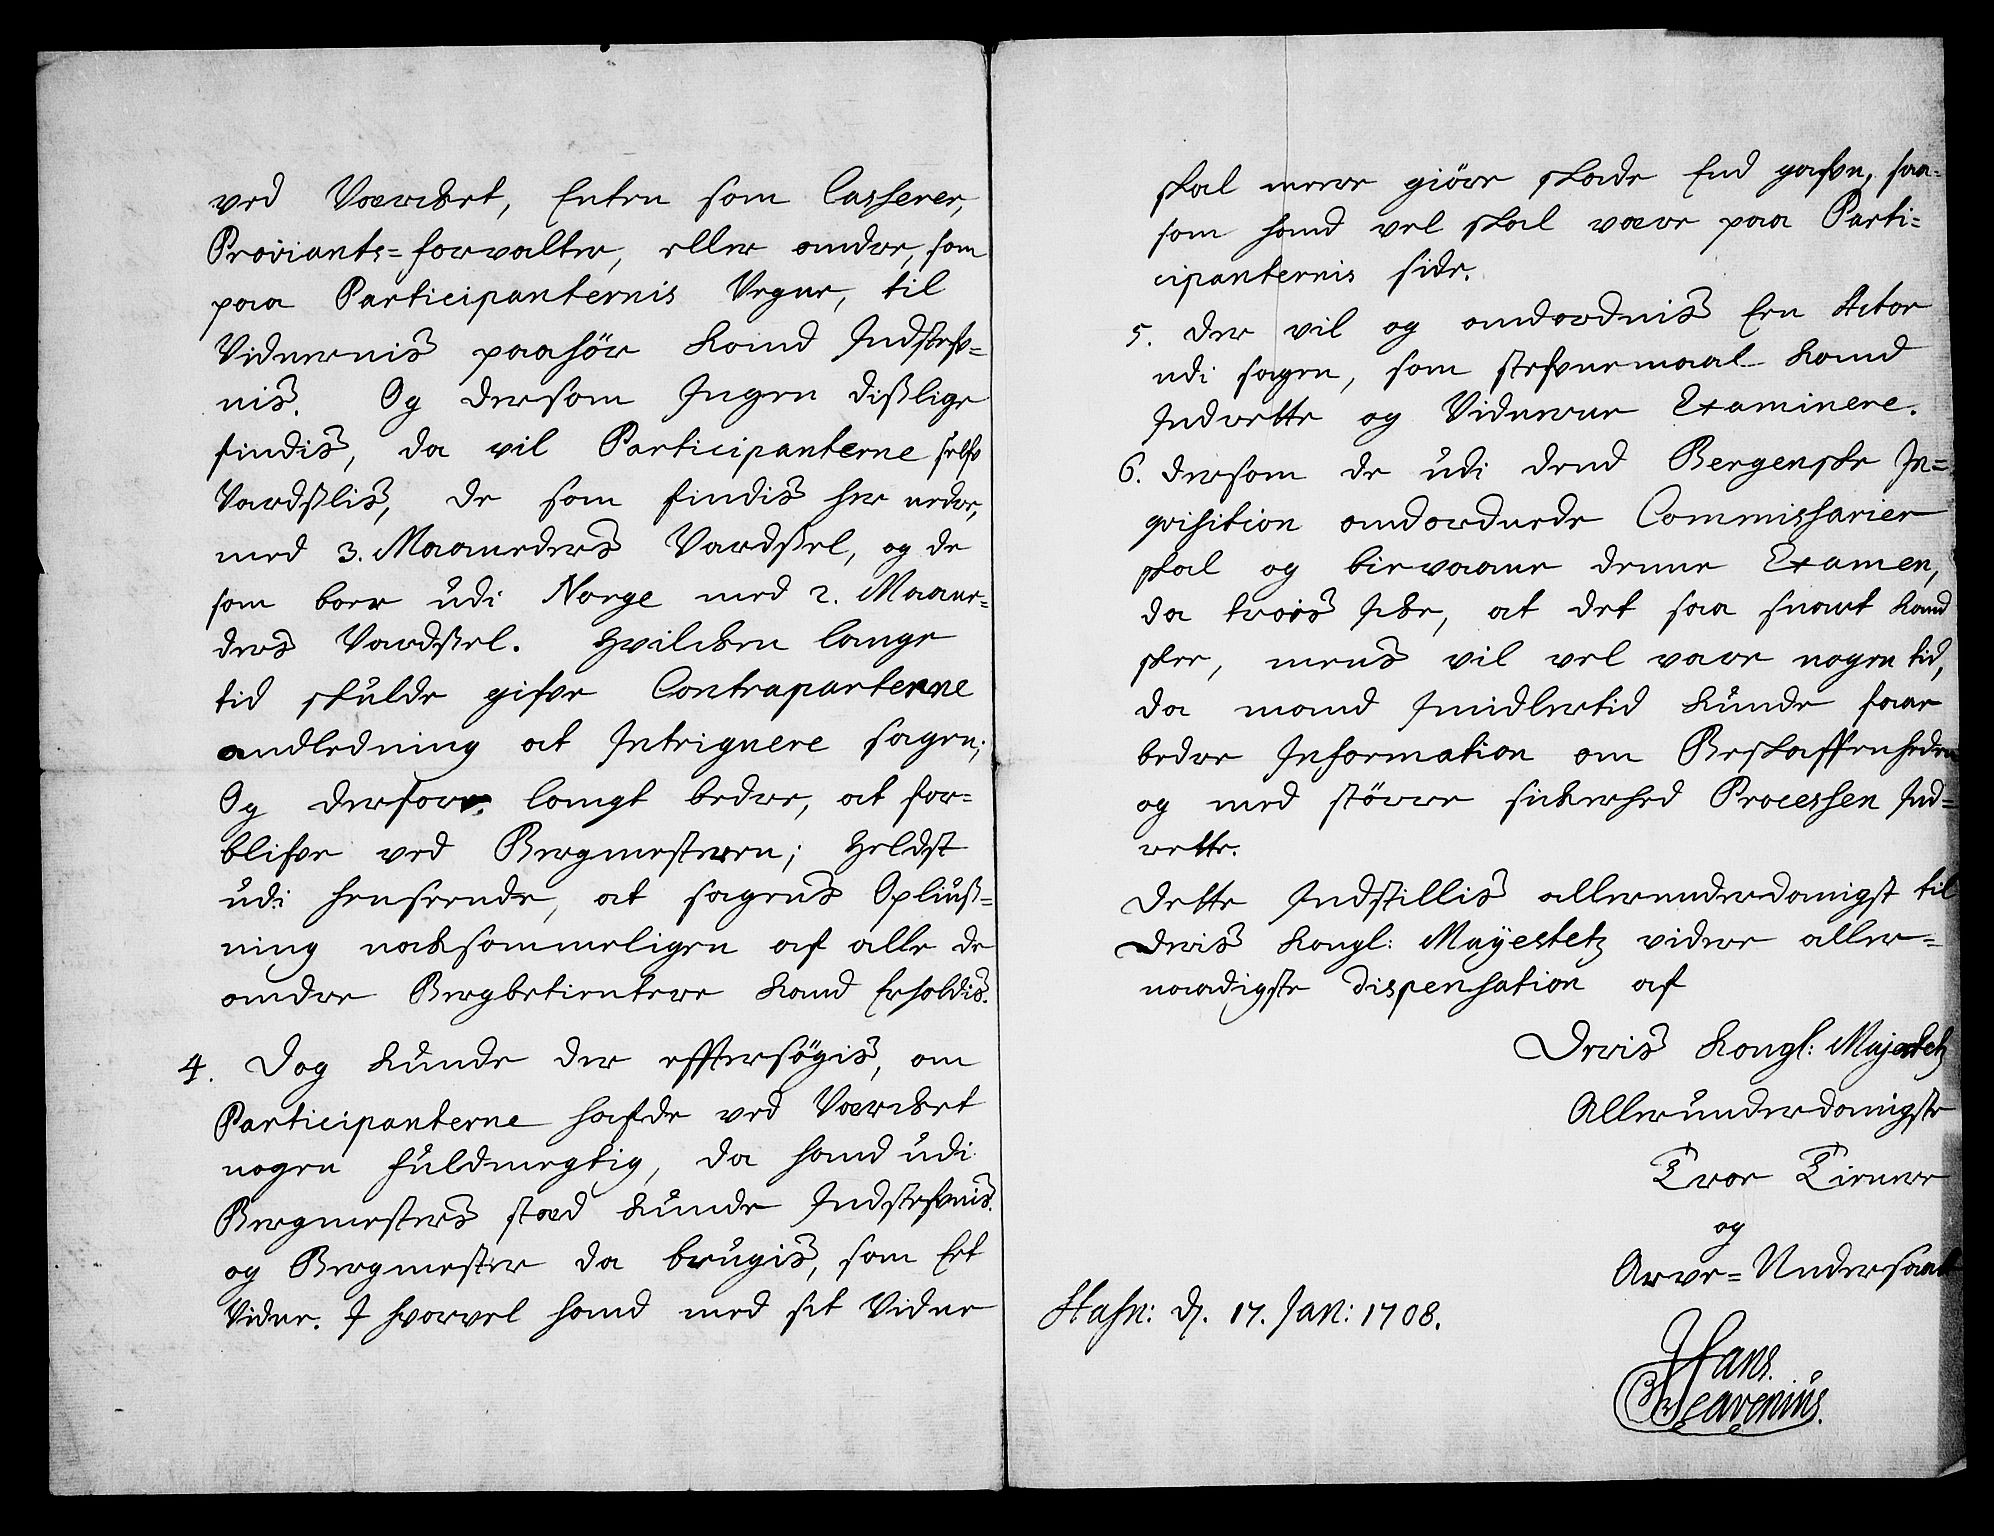 ved Værcket, Enten som Casserer,
Proviants=forvalter, eller andre, som
paa Participanternis Vegne, til
Vidnernis paahör kand Indstefv=
nis. Og dersom Ingen disslige
findis, da vil Participanterne self
Vardsslis, de som findis her nedre,
med 3. Maaneders Vardssel, og de
som boer udi Norge med 2. Maane=
ders Vardssel. Hvilcken lange
tid skulde gifve Contraparterne
andledning at Intriguere sagen;
Og derfore langt bedre, at for=
blifve ved Bergmesteren; Heldst
udi henseende, at sagens Opliuss=
ning nocksommeligen af alle de
andre Bergbetientere kand Erholdis.
4. Dog kunde der efftersögis, om
Participanterne hafde ved Værcket
nogen fuldmegtig, da hand udi
Bergmesters stæd kunde Indstefvnis.
og Bergmester da brugis, som Et
Vidne. I hvorvel hand med sit Vidne
skal meere giöre skade End gafvn, saa=
som hand vel skal være paa Parti=
cipanternis side.
5. der vil og andordnis Een Actor
udi sagen, som stefvnemaal kand
Indrette og Vidnerne Examinere.
6. dersom de udi dend Bergenske In=
qvisition andordnede Commissarier
skal og bievaane denne Examen,
da trois Icke, at det saa snart kand
skee, mens vil vel være nogen tid,
da mand Imidlertid kunde faae
bedre Information om Beskaffenheden
og med större sickerhed Processen Ind=
rette.
Dette Indstillis allerunderdanigst til
Deris Kongl: Mayestetz videre aller=
naadigste dispensation af
Deris Kongl: Majestetz
Allerunderdanigste
Troe Tienere
og
Arve=Undersaat
Hafn: d. 17. Jan: 1708.
Hans
Seavenius.